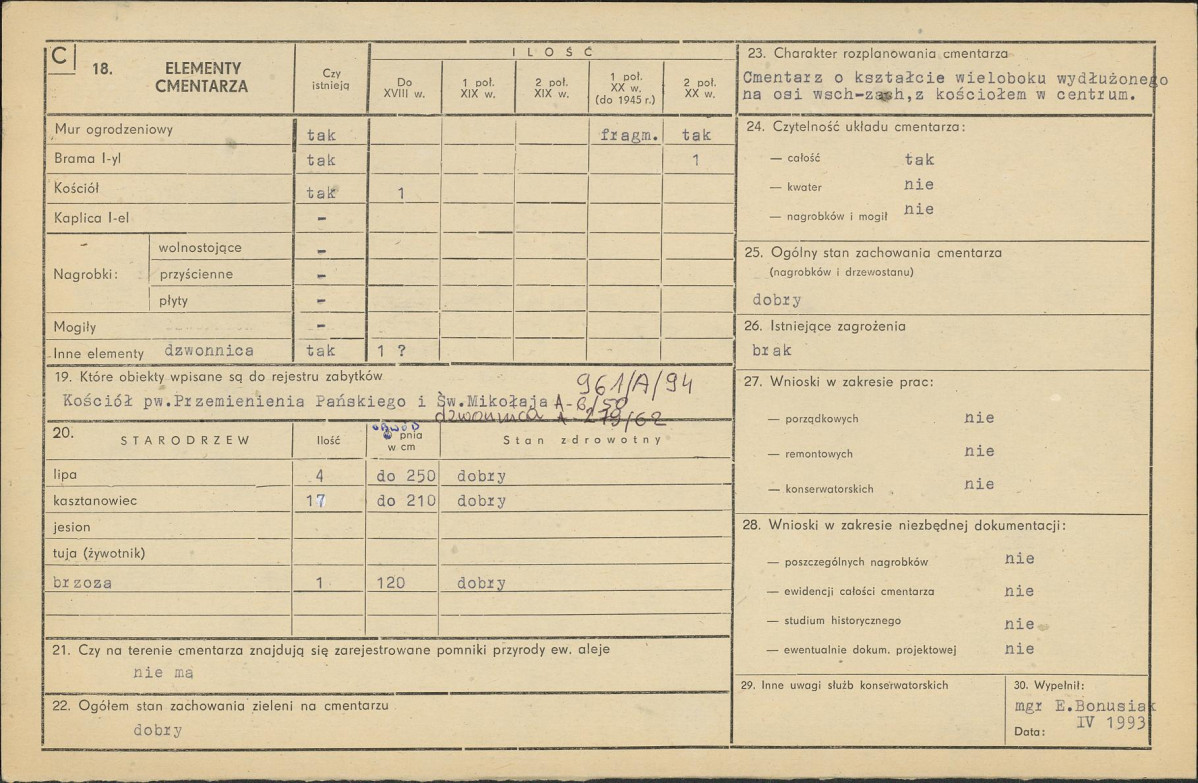 C
18. ELEMENTY CMENTARZA
Czy istnieją
ILOŚĆ
Do XVIII w.
1 poł. XIX w.
2 poł. XIX w.
1 poł. XX w. (do 1945 r.)
2 poł. XX w.
Mur ogrodzeniowy tak fragm. tak
Brama I-yl tak 1
Kościół tak 1
Kaplica I-el –
Nagrobki: wolnostojące –
przyścienne –
płyty –
Mogiły –
Inne elementy dzwonnica tak 1 ?
19. Które obiekty wpisane są do rejestru zabytków 961/A/94
Kościół pw.Przemienienia Pańskiego i Św.Mikołaja A-8/50
dzwonnica A-279/62
20. STARODRZEW Ilość obwód pnia w cm Stan zdrowotny
lipa 4 do 250 dobry
kasztanowiec 17 do 210 dobry
jesion
tuja (żywotnik)
brzoza 1 120 dobry
21. Czy na terenie cmentarza znajdują się zarejestrowane pomniki przyrody ew. aleje
nie ma
22. Ogółem stan zachowania zieleni na cmentarzu
dobry
23. Charakter rozplanowania cmentarza
Cmentarz o kształcie wieloboku wydłużonego
na osi wsch-zach,z kościołem w centrum.
24. Czytelność układu cmentarza:
— całość tak
— kwater nie
— nagrobków i mogił nie
25. Ogólny stan zachowania cmentarza
(nagrobków i drzewostanu)
dobry
26. Istniejące zagrożenia
brak
27. Wnioski w zakresie prac:
— porządkowych nie
— remontowych nie
— konserwatorskich nie
28. Wnioski w zakresie niezbędnej dokumentacji:
— poszczególnych nagrobków nie
— ewidencji całości cmentarza nie
— studium historycznego nie
— ewentualnie dokum. projektowej nie
29. Inne uwagi służb konserwatorskich
30. Wypełnił:
mgr E.Bonusiak
IV 1993
Data: